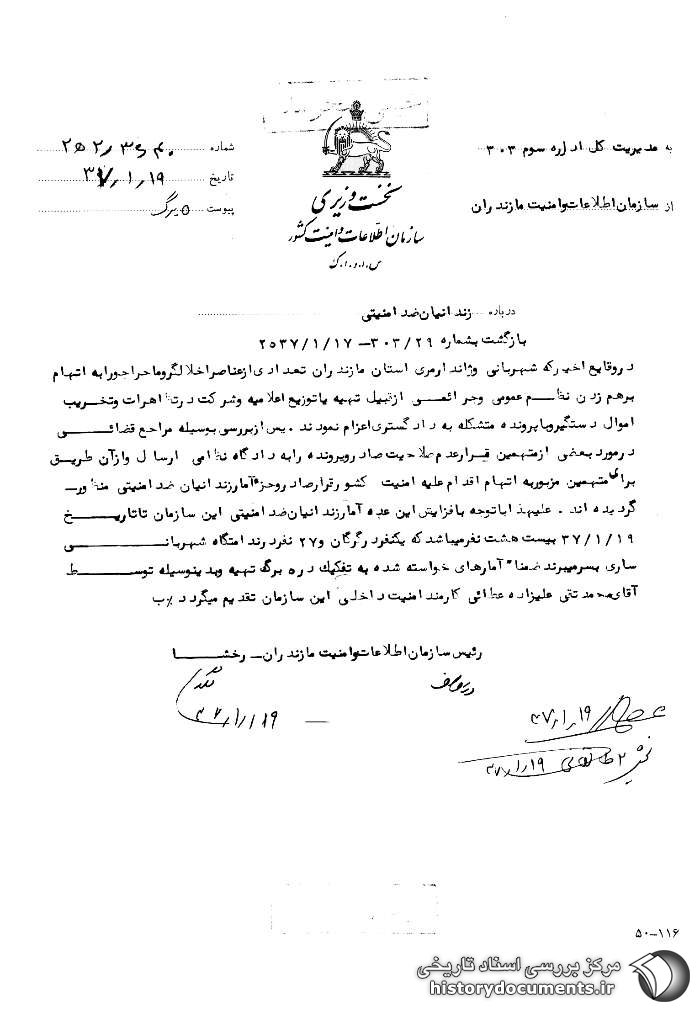 به مدیریت کل اداره سوم ۳۰۳
از سازمان اطلاعات و امنیت مازندران
نخست وزیری
سازمان اطلاعات و امنیت کشور
س.ا.و.ا.ک
شماره
تاریخ ۳۷/۱/۱۹
پیوست ۵ برگ
درباره زندانیان ضد امنیتی
بازگشت بشماره ۳۰۳/۲۹ – ۲۵۳۷/۱/۱۷
در وقایع اخیر که شهربانی و ژاندارمری استان مازندران تعدادی از عناصر اخلالگر و ماجراجو را به اتهام
برهم زدن نظم عمومی و جرائمی از قبیل تهیه یا توزیع اعلامیه و شرکت در تظاهرات و تخریب
اموال دستگیر و با پرونده متشکله به دادگستری اعزام نمودند. پس از بررسی بوسیله مراجع قضائی
در مورد بعضی از متهمین قرار عدم صلاحیت صادر و پرونده را به دادگاه نظامی ارسال و از آن طریق
برای متهمین مزبور به اتهام اقدام علیه امنیت کشور قرار صادر و جزء آمار زندانیان ضد امنیتی منظور
گردیده اند. علیهذا با توجه با فزایش این عده آمار زندانیان ضد امنیتی این سازمان تا تاریخ
۳۷/۱/۱۹ بیست هشت نفر میباشد که یکنفر در گرگان و ۲۷ نفر در ندامتگاه شهربانی
ساری بسر میبرند ضمناً آمارهای خواسته شده به تفکیک در ۵ برگ تهیه و بدینوسیله توسط
آقای محمد تقی علیزاده عطائی کارمند امنیت داخلی این سازمان تقدیم میگردد
رئیس سازمان اطلاعات و امنیت مازندران – رخشا
۳۷/۱/۱۹
۳۷/۱/۱۹
۳۷/۱/۱۹
۵۰-۱۱۶
مرکز بررسی اسناد تاریخی
historydocuments.ir